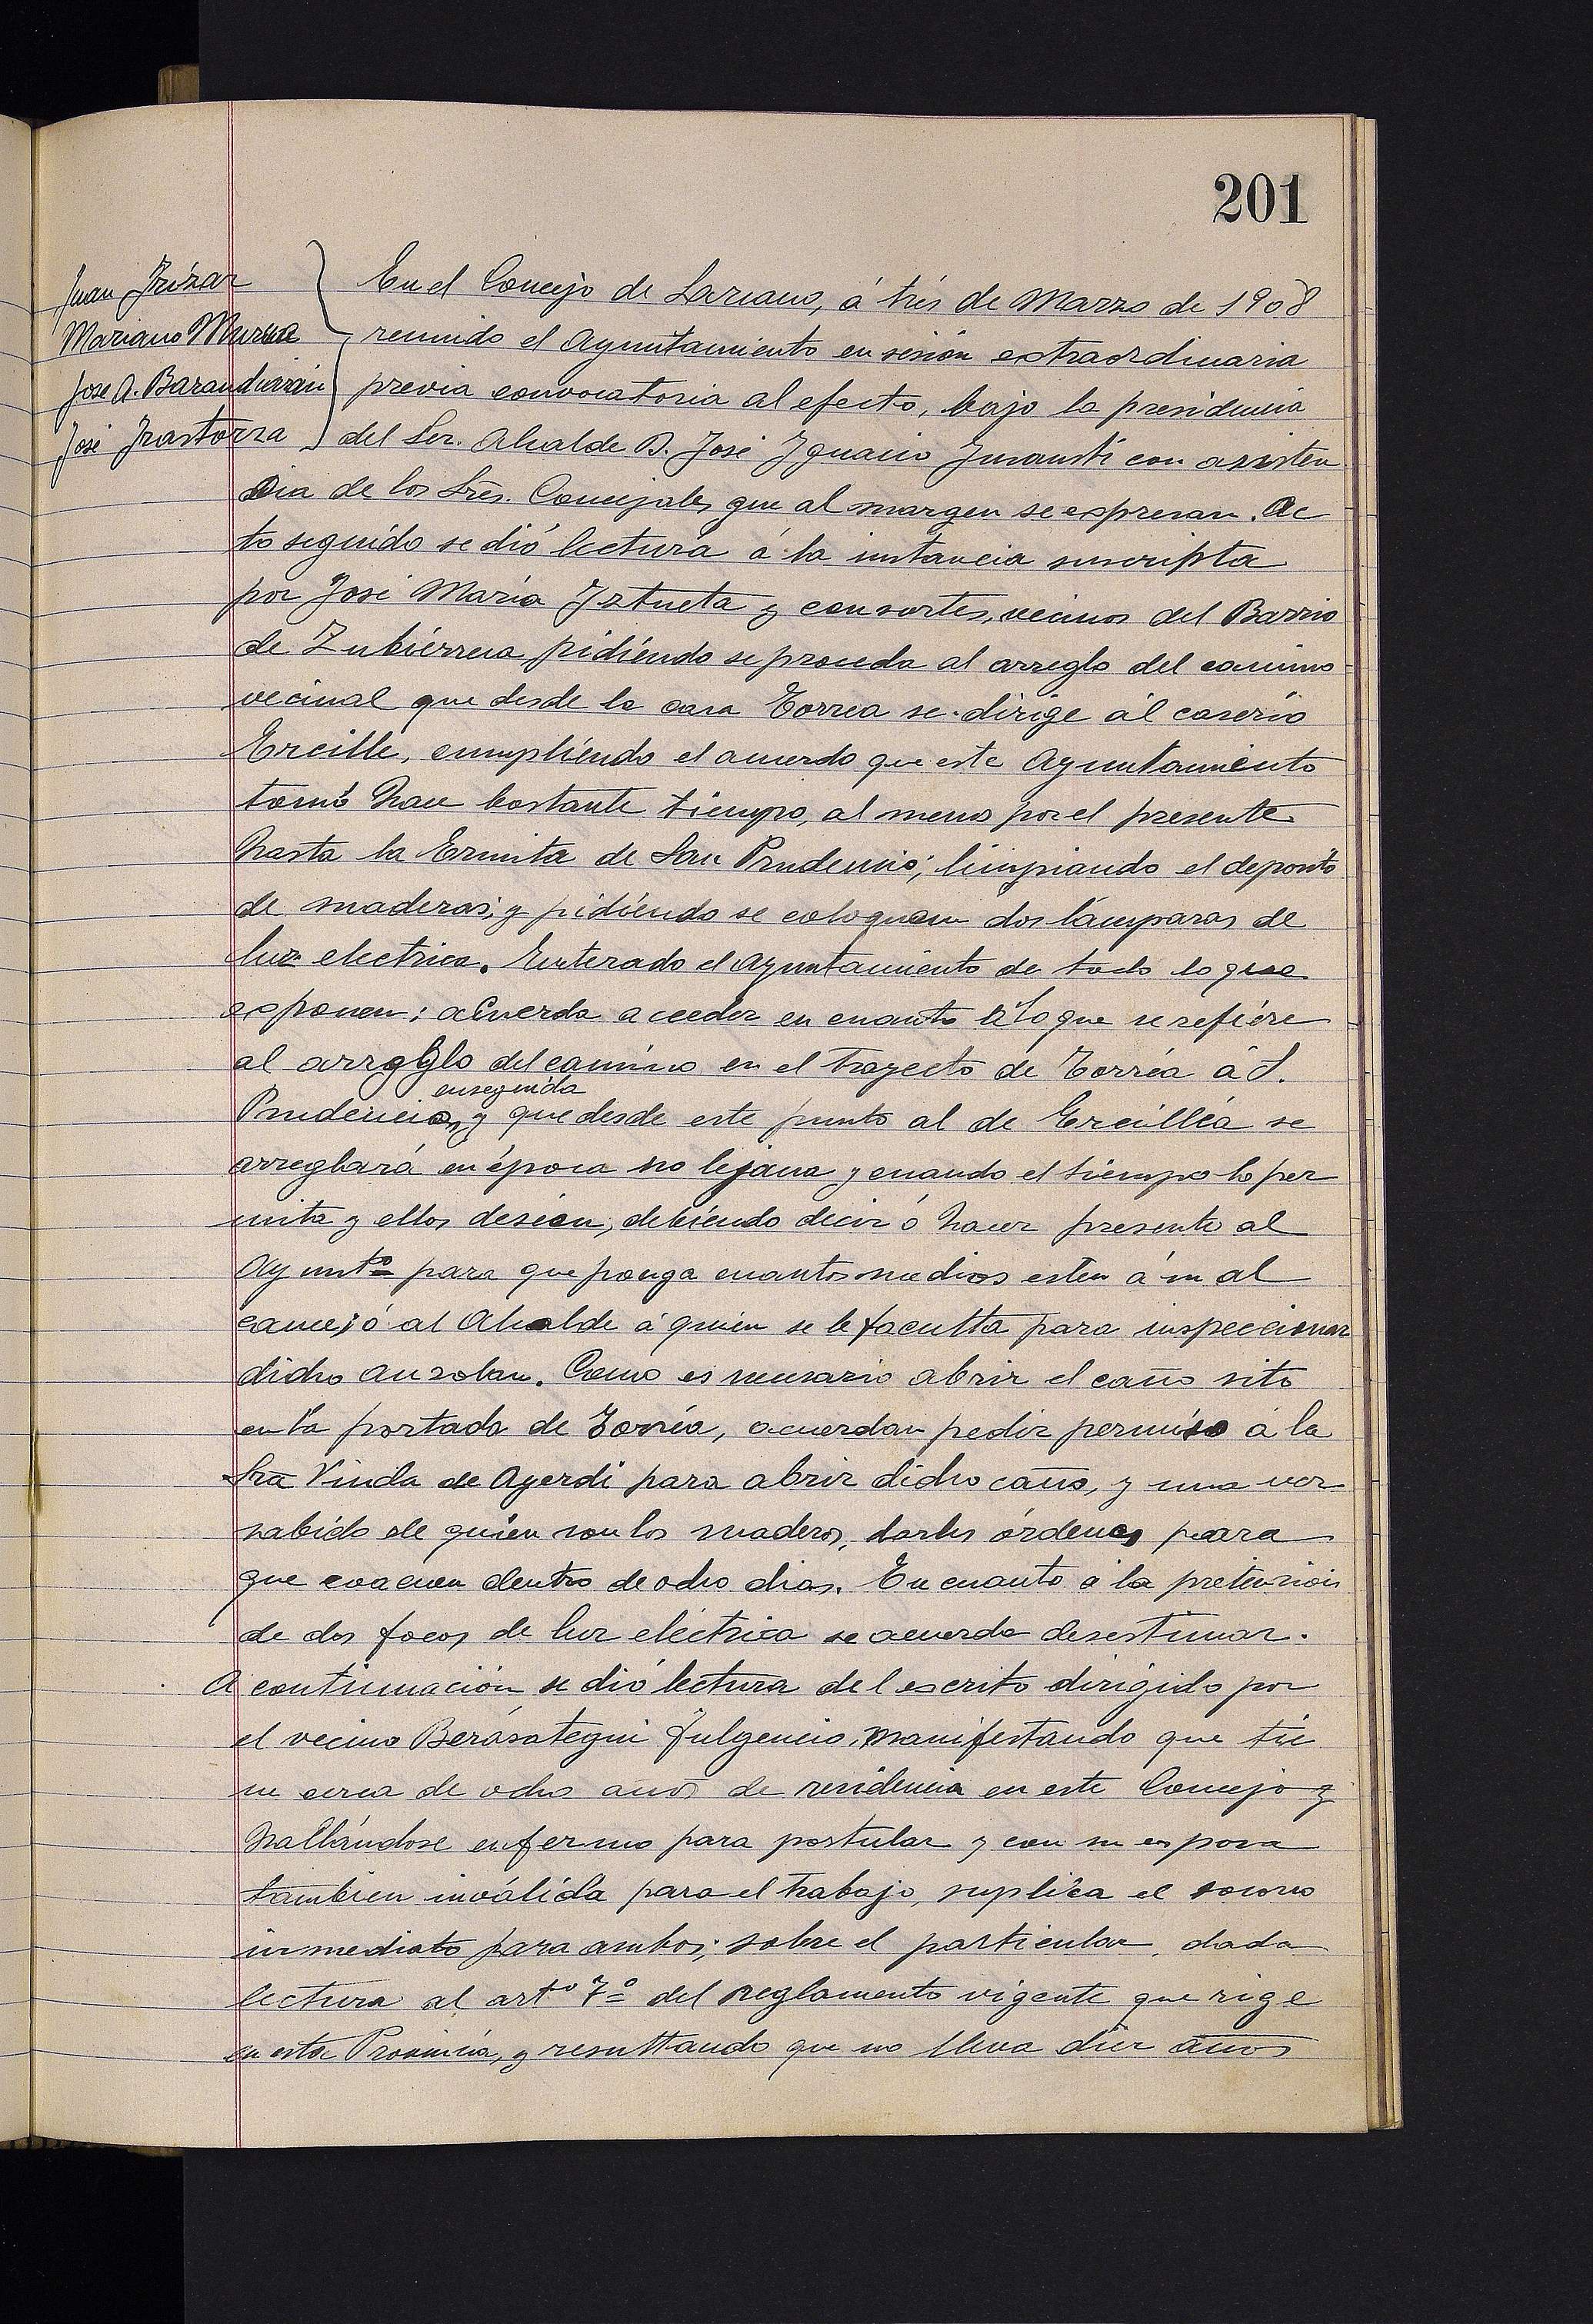 201
Juan Irizar
Mariano Murua
José A. Barandiarán
José Irastorza
En el Concejo de Lazcano, á trés de Marzo de 1908
reunido el Ayuntamiento en sesión extraordinaria
previa convocatoria al efecto, bajo la presidencia
del Ser. Alcalde D. José Ignacio Insausti con asisten
cia de los Sres. Concejales que al margen se expresan. Ac
to seguido se dió lectura á la instancia suscripta
por José María Iztueta y consortes, vecinos del Barrio
de Zubierrera pidiendo se proceda al arreglo del camino
vecinal que desde la casa Torrea se dirige al caserío
Ercille, cumpliendo el acuerdo que este Ayuntamiento
tomó hace bastante tiempo, al menos por el presente
hasta la Ermita de San Prudencio; limpiando el deposito
de maderas; y pidiendo se coloquen dos lámparas de
luz electrica. Enterado el Ayuntamiento de todo lo que
exponen; acuerda acceder en cuanto á lo que se refiere
al arreglo del camino en el trayecto de Torréa á S.
enseguida
Prudencio, y que desde este punto al de Ercilléa se
arreglará en época no lejana y cuando el tiempo lo per
mita y ellos deséen, debiendo decir ó hacer presente al
Ayuntº para que ponga cuantos medios esten á su al
cance; ó al Alcalde á quien se le faculta para inspeccionar
dicho auzolan. Como es necesario abrir el caño sito
en la portada de Torréa, acuerdan pedir permiso á la
Sra Viuda de Ayerdi para abrir dicho caño, y una vez
sabido de quién son los maderos, darles órdenes para
que evacuen dentro de ocho dias. En cuanto á la pretensión
de dos focos de luz eléctrica se acuerda desestimar.
A continuación se dió lectura del escrito dirigido por
el vecino Berásategui Fulgencio, manifestando que tie
ne cerca de ocho años de residencia en este Concejo y
hallándose enfermo para postular y con su esposa
tambien inválida para el trabajo, suplica el socorro
inmediato para ambos; sobre el particular, dada
lectura al artº 7º del reglamento vigente que rige
en esta Provincia, y resultando que no lleva diez años